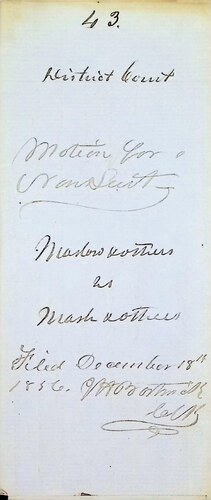 43.
District Court
Motion for a
Non Suit
& others
vs
Mask & others
Filed December 18th
1856.
Clk